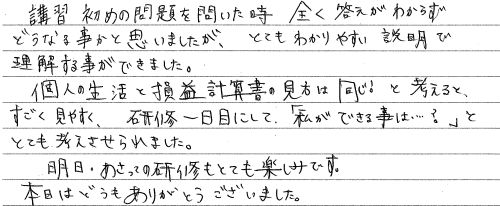 講習 初めの問題を問いた時 全く答えがわからず
どうなる事かと思いましたが、とてもわかりやすい説明で
理解する事ができました。
個人の生活と損益計算書の見方は同じ！と考えると、
すごく見やすく、研修一日目にして、「私ができる事は…？」と
とても考えさせられました。
明日・あさっての研修もとても楽しみです。
本日はどうもありがとうございました。